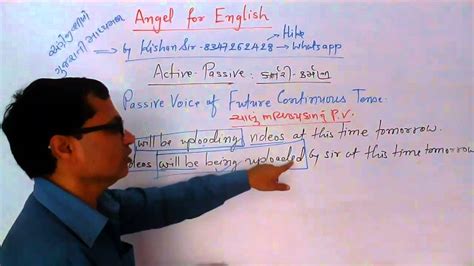 Angel for English
ગુજરાતી
Hike
by Kishan Sir - 8347262428 → Whatsapp
Active-Passive :
Passive Voice of Future Continuous Tense.
P.V.
will be uploading videos at this time tomorrow.
will be being uploaded by sir at this time tomorrow